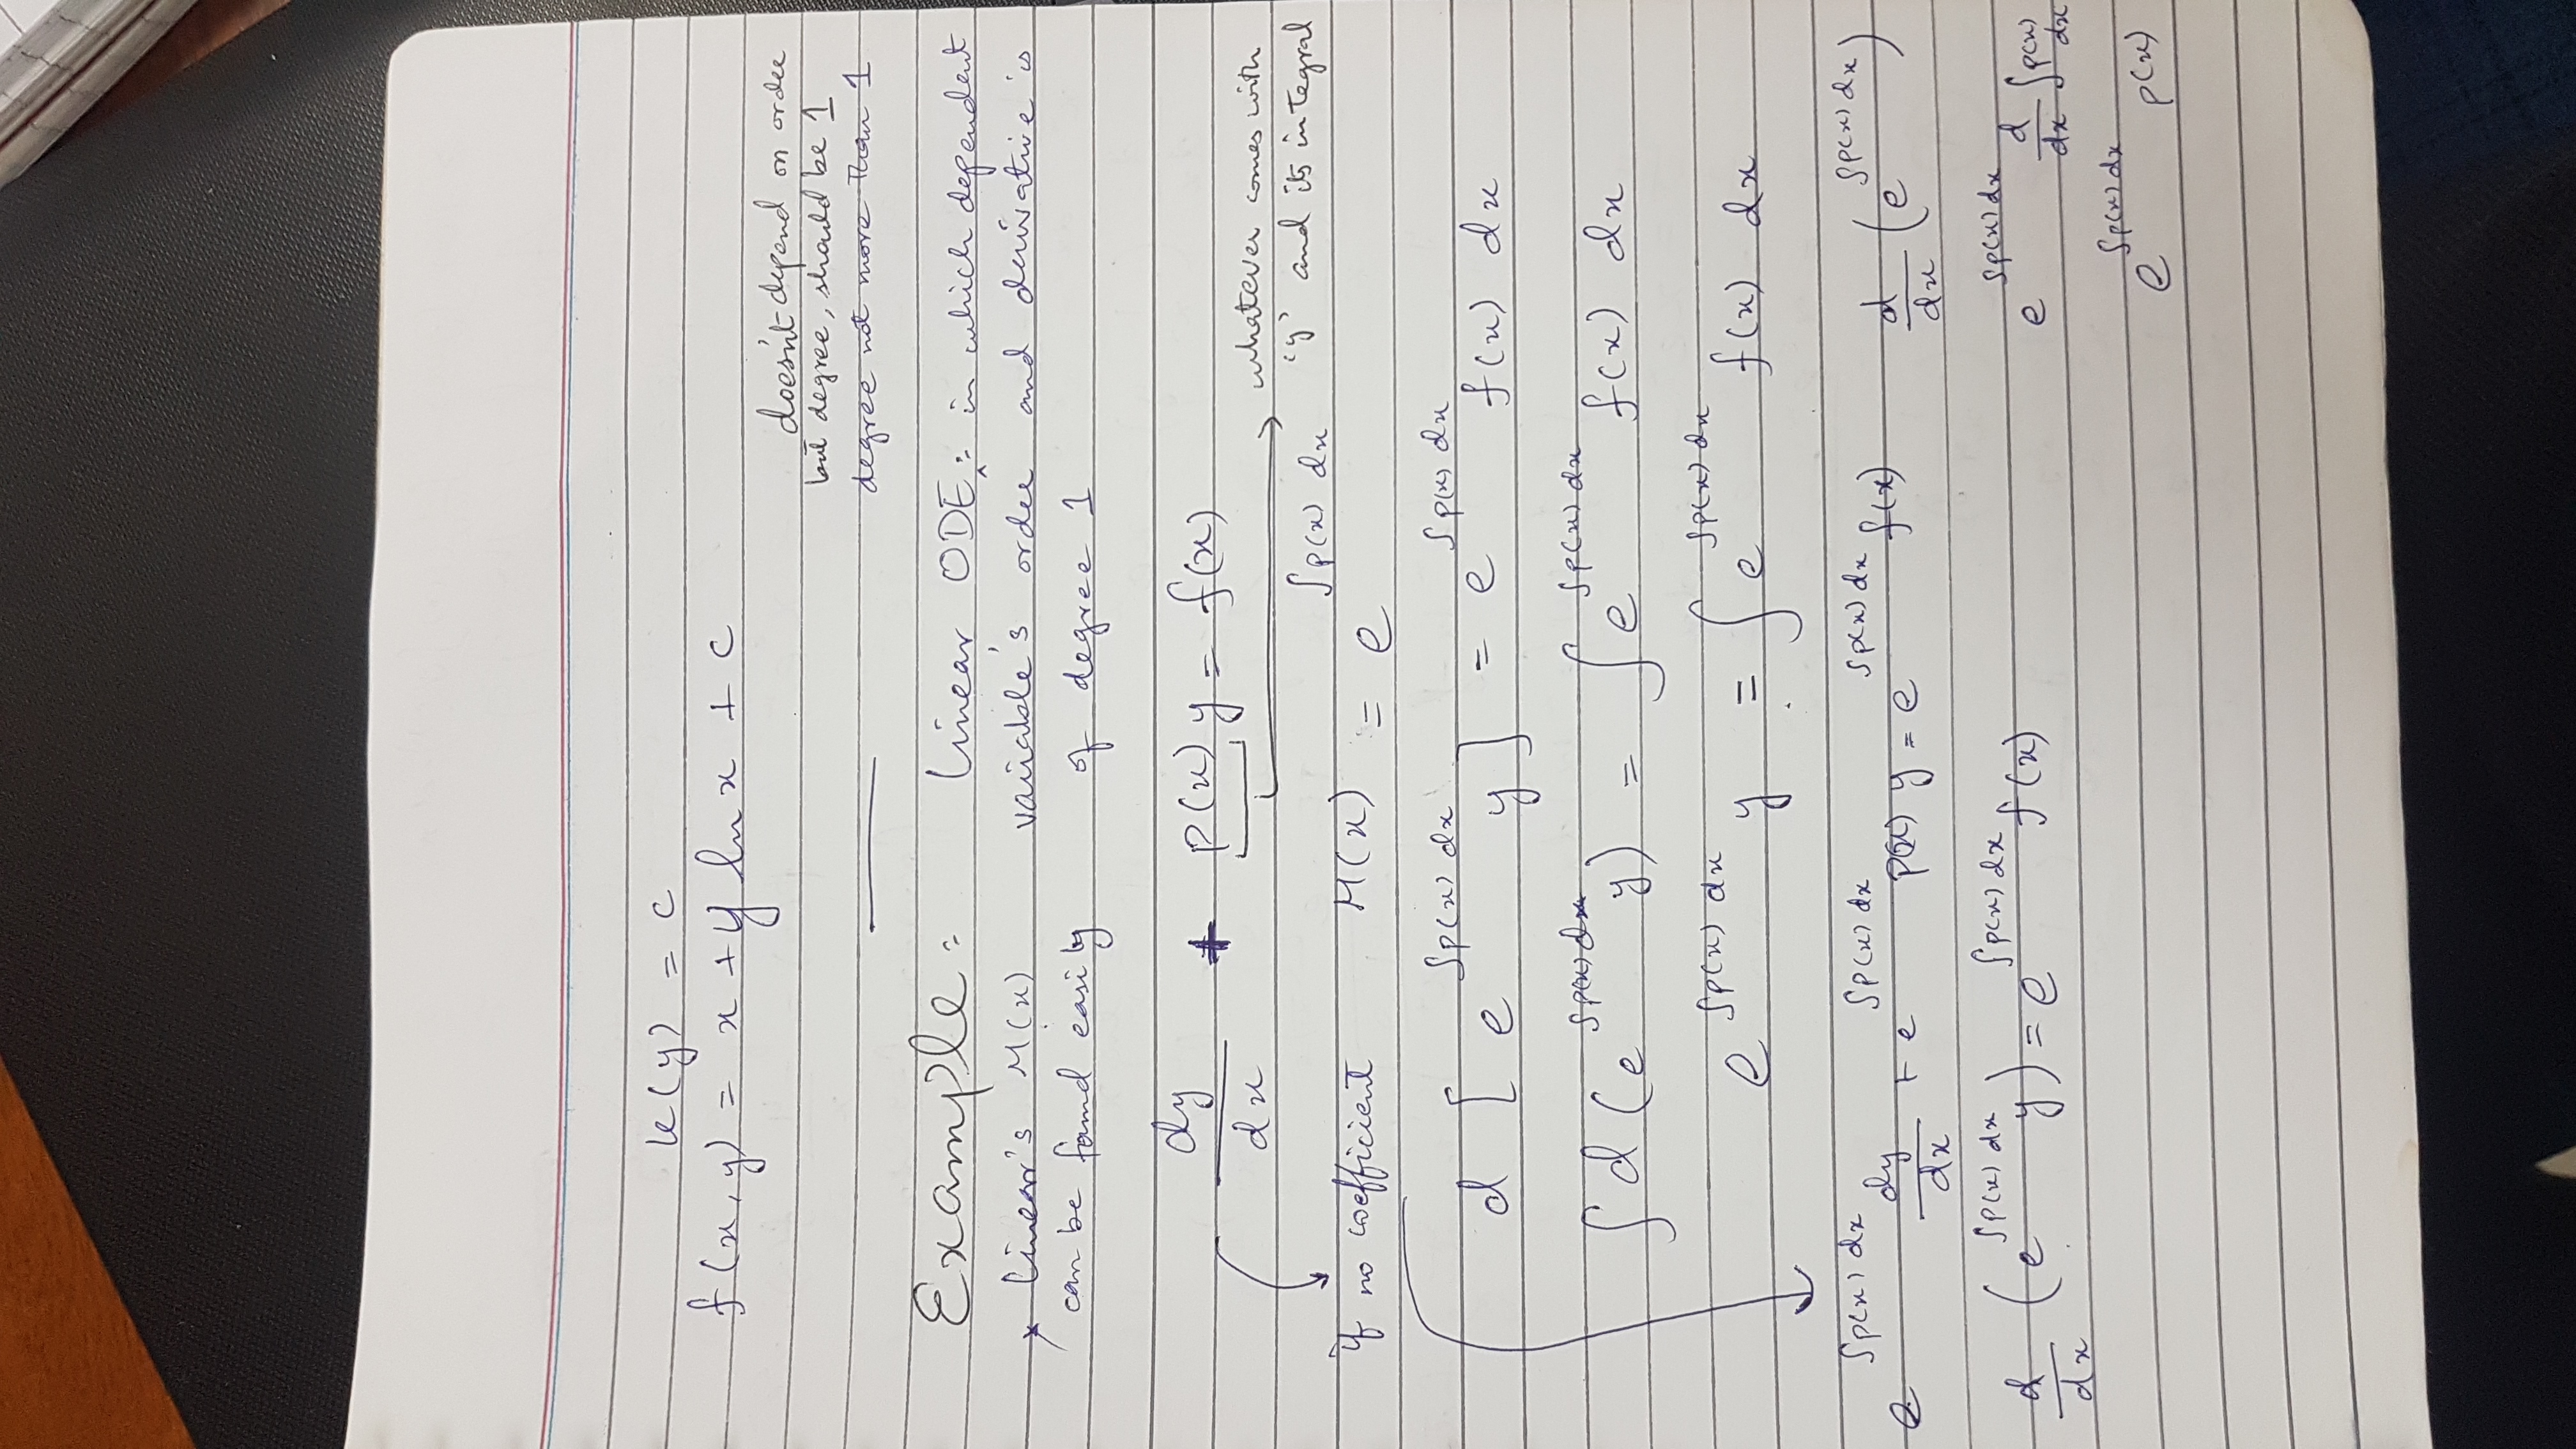 k(y) = c
f(x, y) = x + y ln x + c
doesn't depend on order
but degree, should be 1
degree not more than 1
Example: Linear ODE: in which dependent
* Linear's M(x) variable's order and derivative is
can be found easily of degree 1
dy/dx + p(x) y = f(x)
whatever comes with
'y' and its integral
if no coefficient M(x) = e^∫p(x) dx
d [e^∫p(x) dx y] = e^∫p(x) dx f(x) dx
∫ d (e^∫p(x) dx y) = ∫ e^∫p(x) dx f(x) dx
e^∫p(x) dx y = ∫ e^∫p(x) dx f(x) dx
e^∫p(x) dx dy/dx + e^∫p(x) dx p(x) y = e^∫p(x) dx f(x) d/dx (e^∫p(x) dx)
d/dx (e^∫p(x) dx y) = e^∫p(x) dx f(x) e^∫p(x) dx d/dx ∫p(x) dx
e^∫p(x) dx p(x)